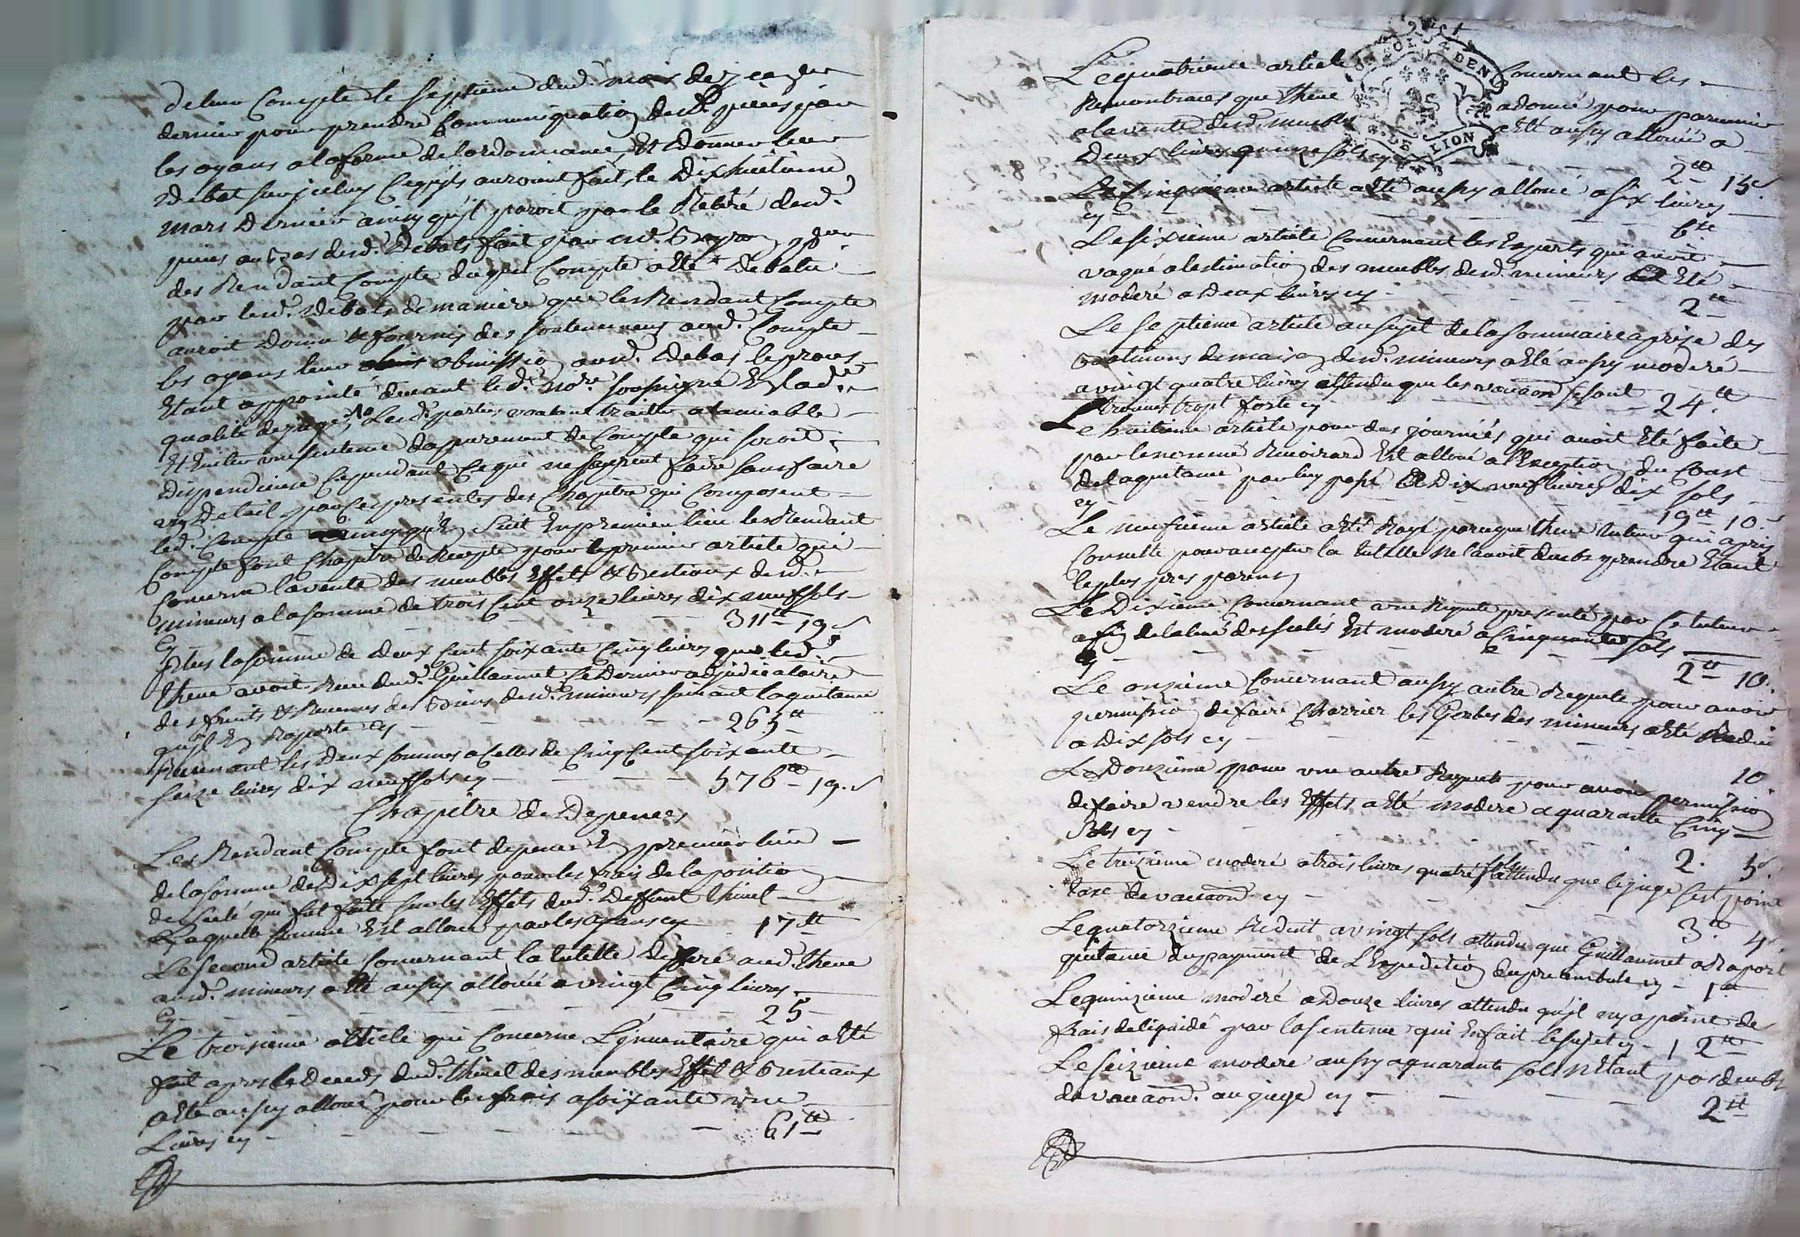 de leur Compte le septieme dud. mois de
dernier pour prendre Communiquation desd. pieces par
les oyans a la forme de lordonnance, Et Donner leur
Debat sur jceluy Ce quils auroint fait le Dixhuitieme
mars Dernier ainsy qujl paroit par le Retiré desd.
pieces au bas desd. Debats fait par
des Rendant Compte duquel Compte a Eté Debatu
par lesd. Debats de maniere que les Rendant Compte
auroit Donné & fournis des soutenemens aud. Compte
les oyans leur obmission ausd. Debas le proces
Etant appointé devant led. sousigné En lad.
qualité de juge, Lesd. parties voulant traitter a lamiable
Et Eviter une sentence dappurement de Compte qui seroit
Dispendieuse Cependant Ce qui ne se peut faire sans faire
un Detail par Ces presentes des Chapitre qui Composent
led. Compte Suit En premier lieu les Rendant
Compte font Chapitre de Recepte pour le premier article qui
Concerne la vente des meubles Effets & bestiaux desd.
mineurs a la somme de trois Cent onze livres dix neuf sols
Cy - - - 311tt 19.s
Plus la somme de Deux Cent soixante Cinq livres que led.
theve avoit Receu dud. Guillaumet Le Dernier adjudicataire
des fruits & Revenus des biens desd. mineurs suivant la quitance
qujl En Raporte Cy - - - 265tt
Revenant les Deux sommes a Celles de Cinq Cent soixante
seize livres dix neuf sols cy - - - 576tt 19.s
Chapitre de Depences
Les Rendant Compte font depence En premier lieu
de la somme de Dix sept livres pour les frais de la position
de sçelé qui fut fait sur les Effets dud. Deffunt thivel
Laquelle somme Est allouée par les oyans cy 17tt
Le second article Concernant la tutelle Differé aud. theve
ausd. mineurs a Eté aussy allouée a vingt Cinq livres
Cy - - - 25
Le troisieme article qui Concerne L'jnventaire qui a Eté
fait apres le Deceds dud. thivel des meubles Effet & bestiaux
a Eté aussy alloué pour les frais a soixante une
Livres cy - - - 61tt
Le quatrieme article Concernant les
Remontrances que theve a donné pour parvenir
a la vente desd. meubles a Eté aussy allouée a
Deux livres quinze sols cy - - 2tt 15s
Le Cinquieme article a Eté aussy alloué a six livres
cy - - - 6tt
Le sixieme article Concernant les Experts qui avoit
vaqué a lestimation des meubles desd. mineurs a Eté
moderé a Deux livres cy - - 2tt
Le septieme article au sujet de la sommaire aprise des
batimens de maison desd. mineurs a Eté aussy moderé
a vingt quatre livres attendu que les vacaõn se sont
trouvés trop forte cy - - 24tt
Le huitieme article pour des journées qui avoit Eté faite
par le nommé Est alloué a l'Exception du Coust
de la quitance par luy payé a Dix neuf livres dix sols
cy - - - 19tt 10.s
Le neufvieme article a Eté Rayé parceque theve tuteur qui apris
Conseille pour accepter la tutelle ne lavoit deub prendre Etant
le plus pres parent
Le Dixieme Concernant une Requete presenté par Le tuteur
afin de la levé des scelés Est moderé a Cinquante sols
cy - - - 2tt 10.
Le onzieme Concernant aussy autre Requete pour avoir
permission de faire Charrier les Gerbes des mineurs a Eté Reduit
a Dix sols cy - - - 10
Le Douzieme pour une autre Requete pour avoir permission
de faire vendre les Effets a Eté moderé a quarante Cinq
Sols cy - - 2. 5s.
Le treizieme moderé a trois livres quatre sols attendu que le juge sest point
taxé de vacaon cy - - - 3tt 4s
Le quatorzieme Reduit a vingt sols attendu que Guillaumet a Raporté
quitance du payement de L'Expedition En preambule cy - 1tt
Le quinzieme moderé a Douze livres attendu qu'jl ny a point de
frais de liquidé par la sentence qui En fait le sujet cy - 12tt
Le seizieme moderé aussy a quarante sols N'Etant pas deub
de vacaõn. au juge cy - - - 2tt